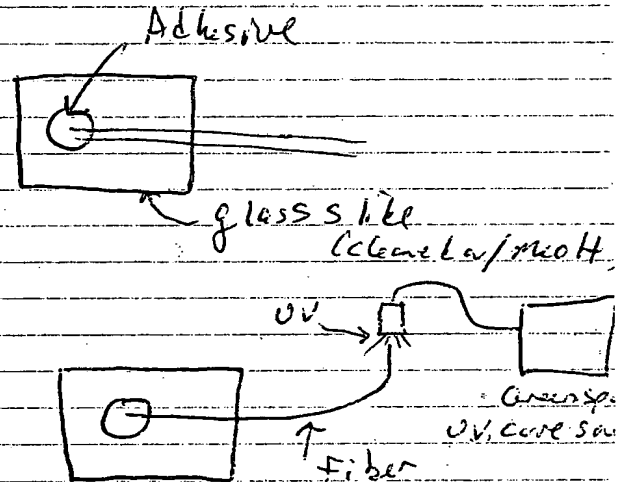 Adhesive
glass slide
(cleaned w/ MeOH
UV
Greensp
UV, cure sou
Fiber